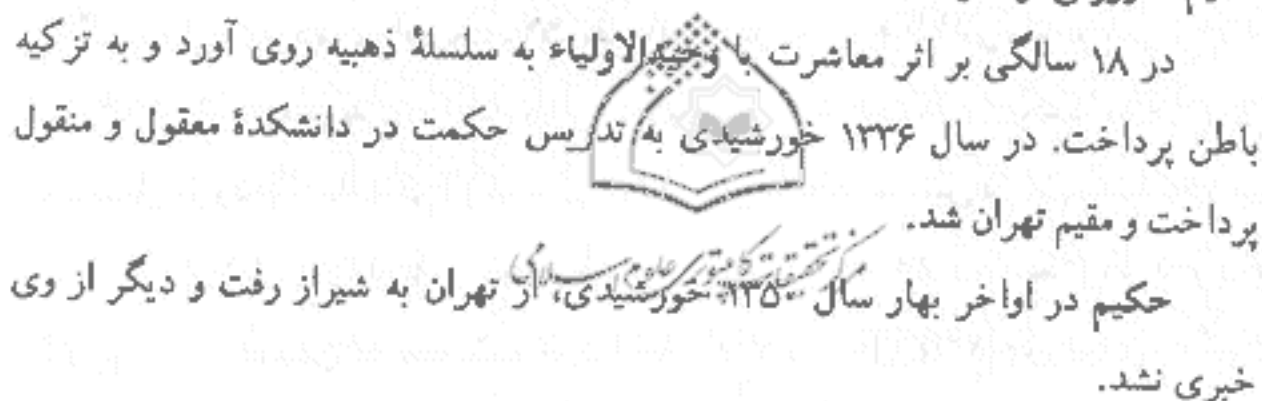 در ۱۸ سالگی بر اثر معاشرت با وحیدالاولیاء به سلسلهٔ ذهبیه روی آورد و به تزکیه
باطن پرداخت. در سال ۱۳۳۶ خورشیدی به تدریس حکمت در دانشکدهٔ معقول و منقول
پرداخت و مقیم تهران شد.
مرکز تحقیقات کامپیوتری علوم اسلامی
حکیم در اواخر بهار سال ۱۳۵۰ خورشیدی، از تهران به شیراز رفت و دیگر از وی
خبری نشد.